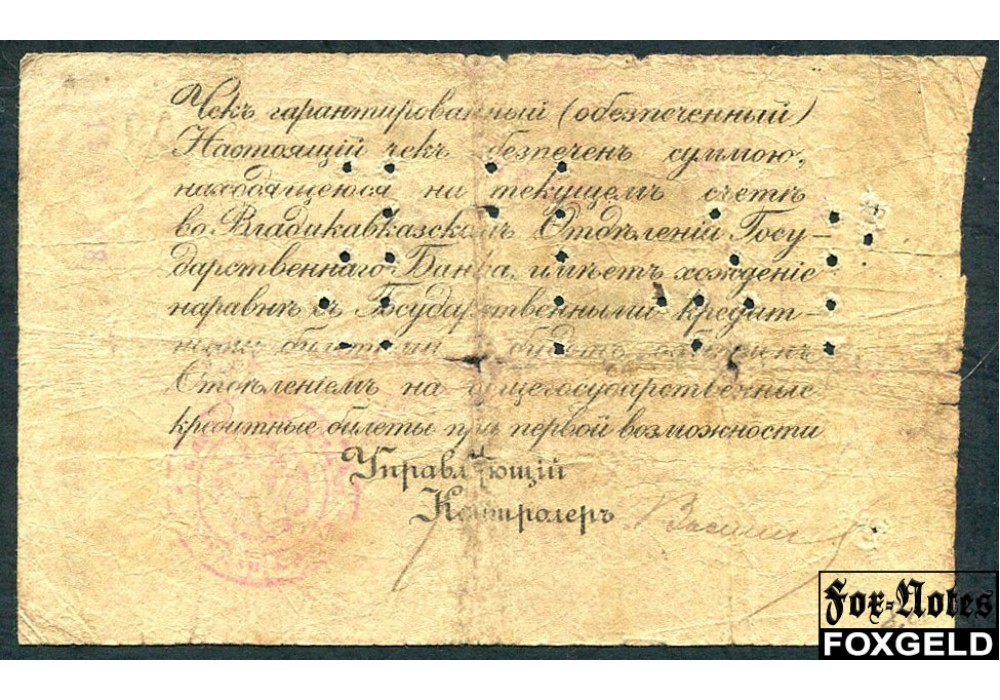 Чекъ гарантированный (обезпеченный)
Настоящий чекъ обезпеченъ суммою,
находящеюся на текущемъ счетѣ
во Владикавказскомъ Отдѣленій Госу-
дарственнаго Банка, имѣетъ хожденіе
наравнѣ съ Государственными кредит-
ными билетами и будетъ
Отдѣленіемъ на общегосударственные
кредитные билеты при первой возможности
Управляющій
Контролеръ
Fox-Notes
FOXGELD